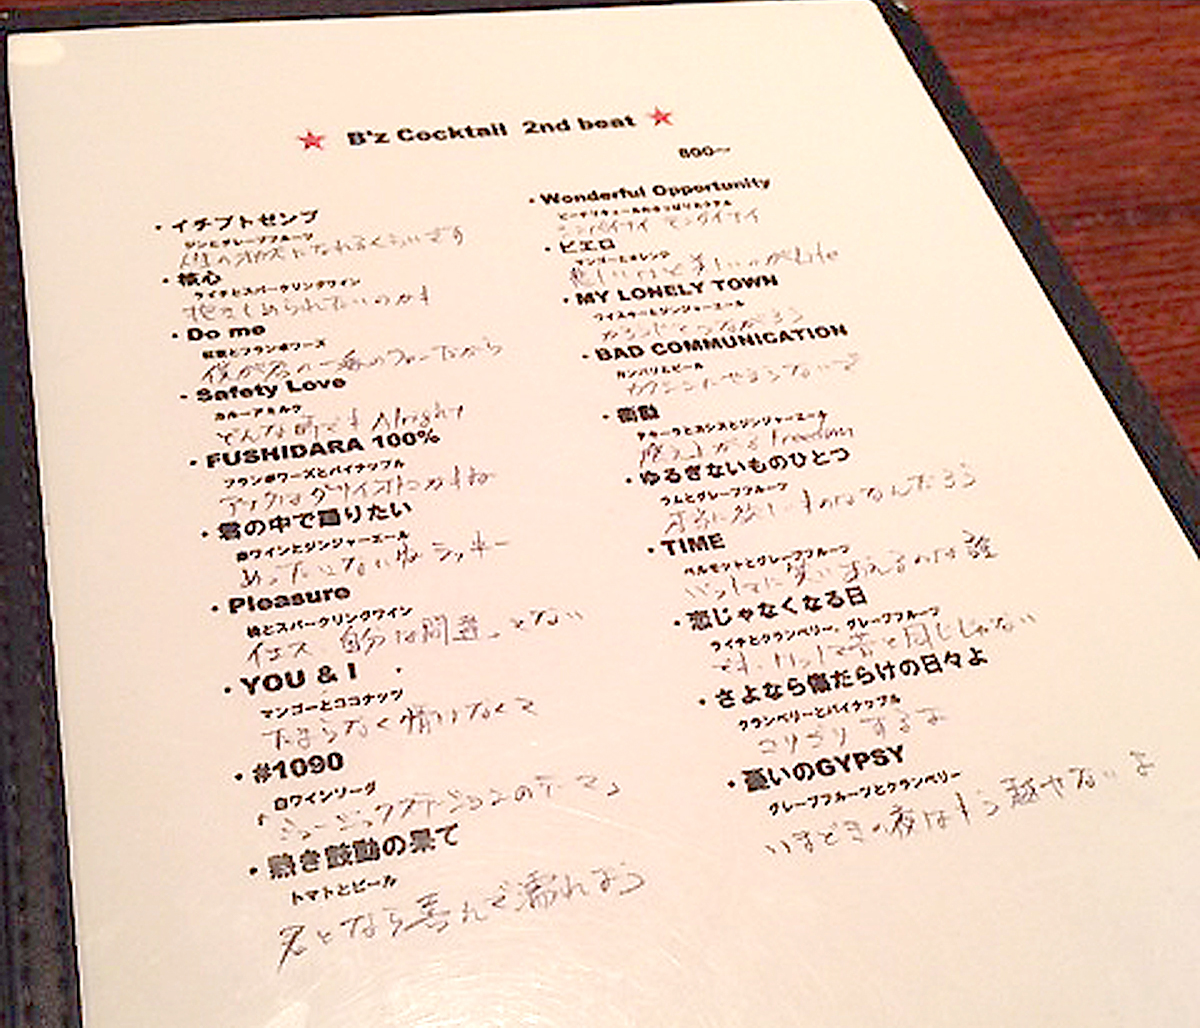 ★ B'z Cocktail 2nd beat ★
800～
・イチブトゼンブ
ジンとグレープフルーツ
人生の
になれるくらいです
・核心
ライチとスパークリングワイン
抱きしめられたいのかも
・Do me
紅茶とフランボワーズ
僕が君の一番のファンだから
・Safety Love
カルーアミルク
どんな時でも Alright
・FUSHIDARA 100%
フランボワーズとパイナップル
・君の中で踊りたい
赤ワインとジンジャーエール
めったにない ラッキー
・Pleasure
桃とスパークリングワイン
イエス 自分は間違ってない
・YOU & I
マンゴーとココナッツ
たまらなく情けなくて
・#1090
白ワインソーダ
「ミュージックステーションのテーマ」
・熱き鼓動の果て
トマトとビール
君となら喜んで濡れよう
・Wonderful Opportunity
ピーチリキュールのさっぱりカクテル
シンパイナイ モンダイナイ
・ピエロ
マンゴーとオレンジ
悲しいけど美しいのがLife
・MY LONELY TOWN
ウイスキーとジンジャーエール
ガランじゃつながろう
・BAD COMMUNICATION
カンパリとビール
・衝動
テキーラとカシスとジンジャーエール
燃え上がるfreedom
・ゆるぎないものひとつ
ラムとグレープフルーツ
本当に欲しいものはなんだろう
・TIME
ベルモットとグレープフルーツ
いっしょに笑い合えるのは誰
・恋じゃなくなる日
ライチとクランベリー、グレープフルーツ
でも、けっして昔と同じじゃない
・さよなら傷だらけの日々よ
クランベリーとパイナップル
コリゴリするよ
・憂いのGYPSY
グレープフルーツとクランベリー
いまどきの夜はもう越せないよ